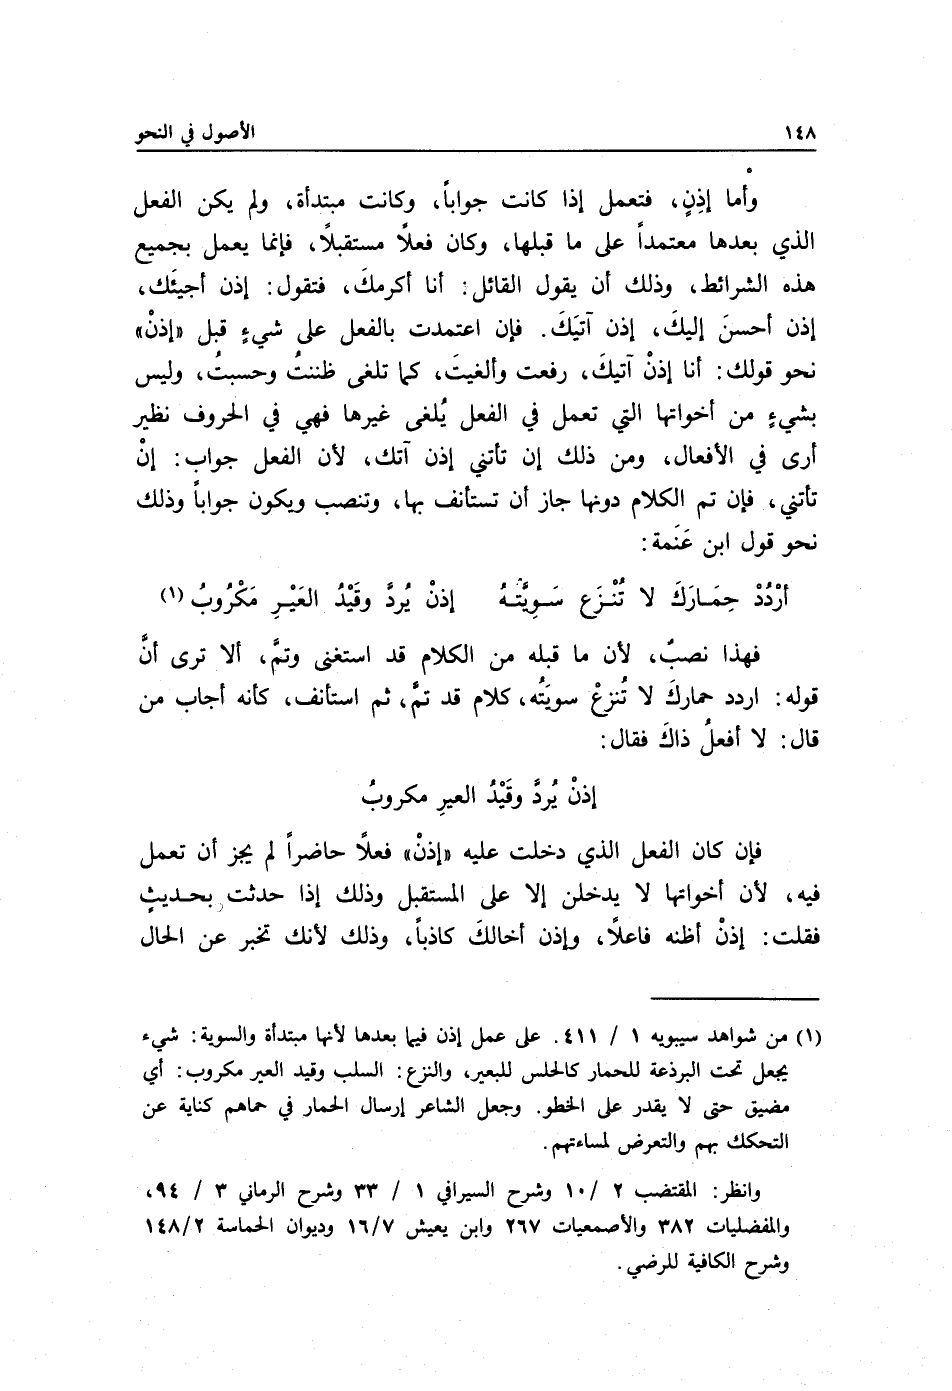 ١٤٨ الأصول في النحو
وأما إذنٍ، فتعمل إذا كانت جواباً، وكانت مبتدأة، ولم يكن الفعل
الذي بعدها معتمداً على ما قبلها، وكان فعلًا مستقبلًا، فإنما يعمل بجميع
هذه الشرائط، وذلك أن يقول القائل: أنا أكرمكَ، فتقول: إذن أجيئَك،
إذن أحسنَ إليكَ، إذن آتيَكَ. فإن اعتمدت بالفعل على شيءٍ قبل «إذنْ»
نحو قولك: أنا إذنْ آتيكَ، رفعت وألغيتَ، كما تلغى ظننتُ وحسبتُ، وليس
بشيءٍ من أخواتها التي تعمل في الفعل يُلغى غيرها فهي في الحروف نظير
أرى في الأفعال، ومن ذلك إن تأتني إذن آتك، لأن الفعل جواب: إنْ
تأتني، فإن تم الكلام دونها جاز أن تستأنف بها، وتنصب ويكون جواباً وذلك
نحو قول ابن عَنَمة:
أرْدُدْ حِمَـارَكَ لا تُنْـزَع سَـوِيَّتَـهُ إذنْ يُردَّ وقَيْدُ العَيْـرِ مَكْروبُ (١)
فهذا نصبٌ، لأن ما قبله من الكلام قد استغنى وتمَّ، ألا ترى أنَّ
قوله: اردد حماركَ لا تُنزعْ سويَتُه، كلام قد تمَّ، ثم استأنف، كأنه أجاب من
قال: لا أفعلُ ذاكَ فقال:
إذنْ يُردَّ وقَيْدُ العيرِ مكروبُ
فإن كان الفعل الذي دخلت عليه «إذنْ» فعلًا حاضراً لم يجز أن تعمل
فيه، لأن أخواتها لا يدخلن إلا على المستقبل وذلك إذا حدثت بحـديثٍ
فقلت: إذنْ أظنه فاعلًا، وإذن أخالكَ كاذباً، وذلك لأنك تخبر عن الحال
(١) من شواهد سيبويه ١ / ٤١١. على عمل إذن فيما بعدها لأنها مبتدأة والسوية: شيء
يجعل تحت البرذعة للحمار كالحلس للبعير، والنزع: السلب وقيد العير مكروب: أي
مضيق حتى لا يقدر على الخطو. وجعل الشاعر إرسال الحمار في حماهم كناية عن
التحكك بهم والتعرض لمساءتهم.
وانظر: المقتضب ٢ /١٠ وشرح السيرافي ١ / ٣٣ وشرح الرماني ٣ / ٩٤،
والمفضليات ٣٨٢ والأصمعيات ٢٦٧ وابن يعيش ١٦/٧ وديوان الحماسة ١٤٨/٢
وشرح الكافية للرضي.